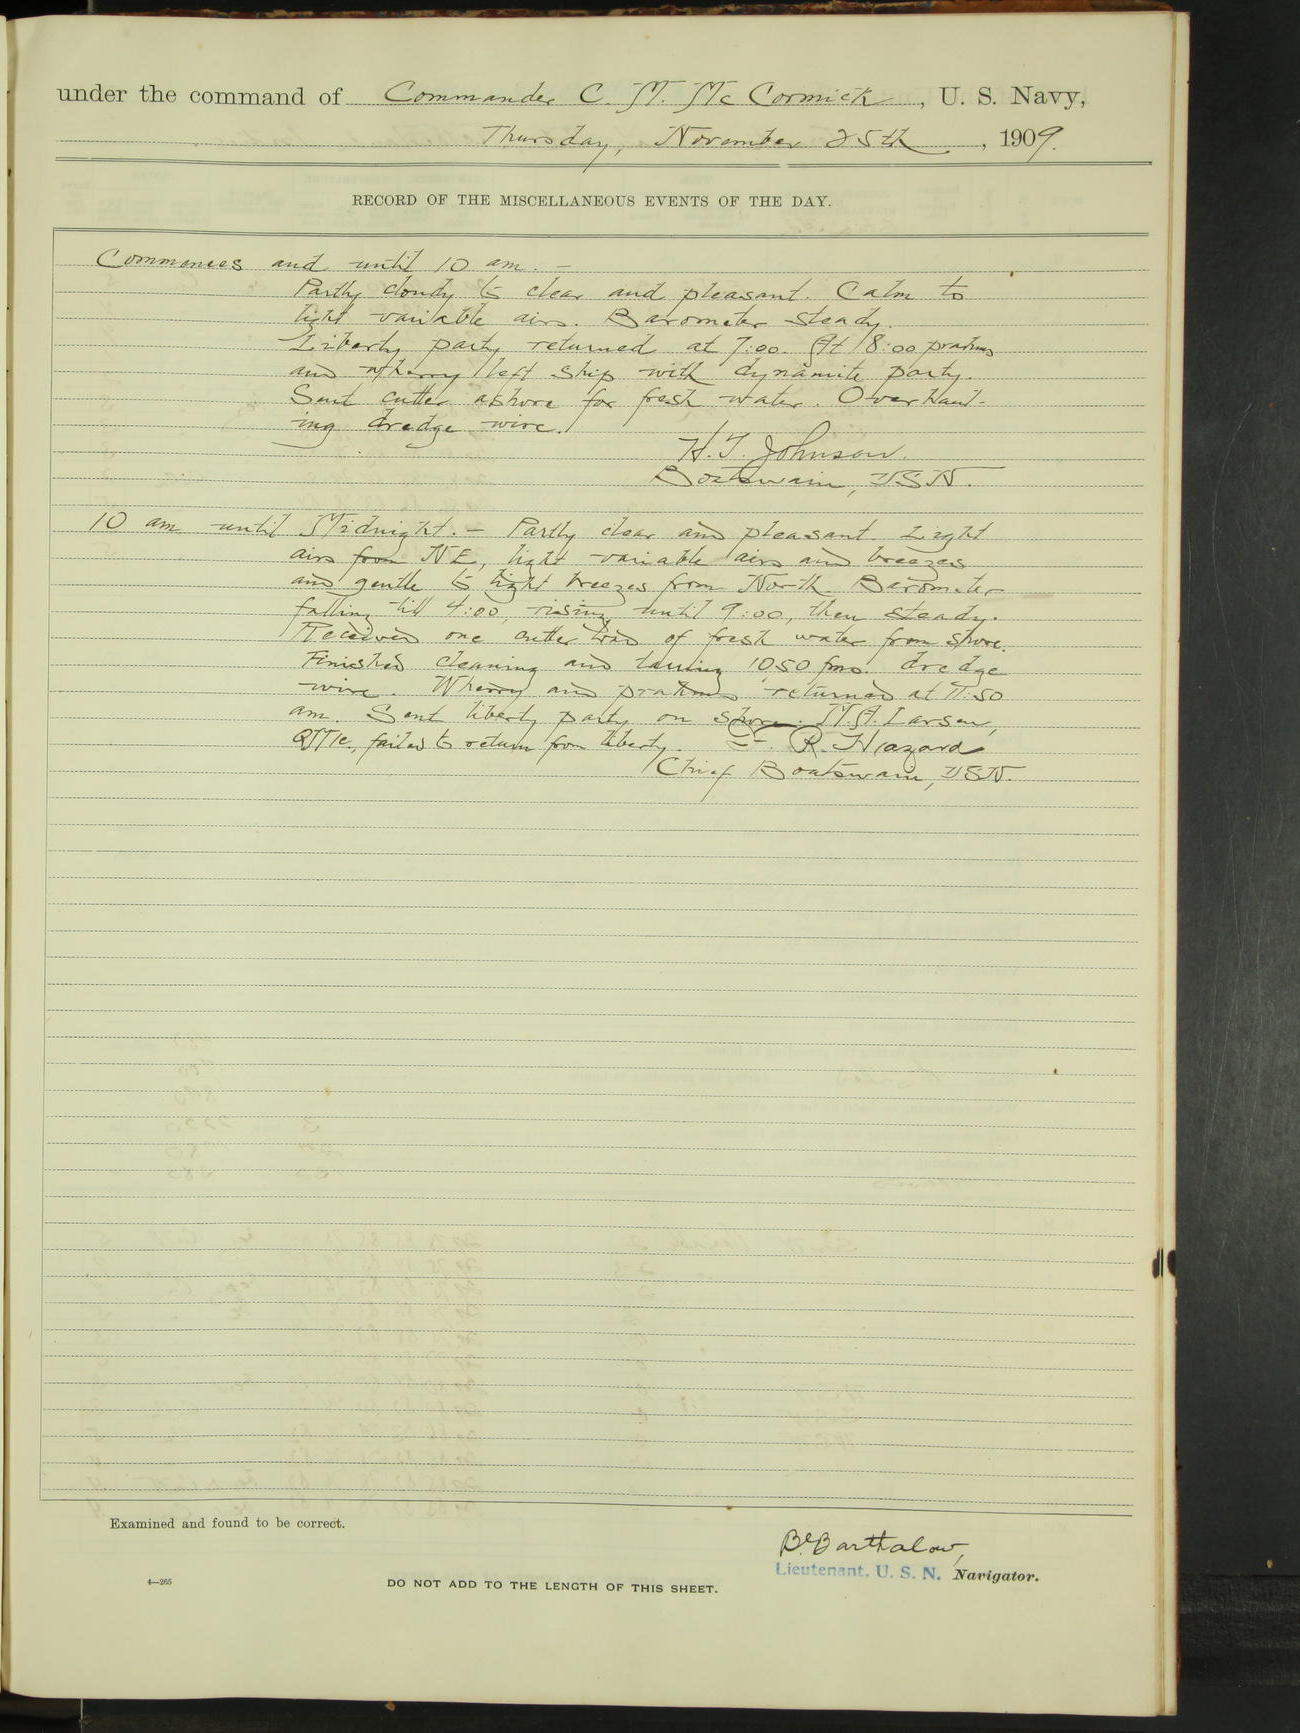 under the command of Commander C. M. McCormick, U. S. Navy,
Thursday, November 25th, 1909.
RECORD OF THE MISCELLANEOUS EVENTS OF THE DAY.
Commences and until 10 am. —
Partly cloudy to clear and pleasant. Calm to
light variable airs. Barometer steady.
Liberty party returned at 7:00. At 8:00 prahms
and wherry left ship with dynamite party.
Sent cutter ashore for fresh water. Overhaul-
ing dredge wire.
H. T. Johnson.
Boatswain, USN.
10 am until Midnight. — Partly clear and pleasant. Light
airs from NE, light variable airs and breezes
and gentle to light breezes from North. Barometer
falling till 4:00, rising until 9:00, then steady.
Received one cutter load of fresh water from shore.
Finished cleaning and tarring 1050 fms. dredge
wire. Wherry and prahms returned at 11:50
am. Sent liberty party on shore. M. A. Larsen,
QM1c, failed to return from liberty. F. R. Hazard
Chief Boatswain, USN.
Examined and found to be correct.
Bartholow,
Lieutenant, U. S. N. Navigator.
4—265
DO NOT ADD TO THE LENGTH OF THIS SHEET.